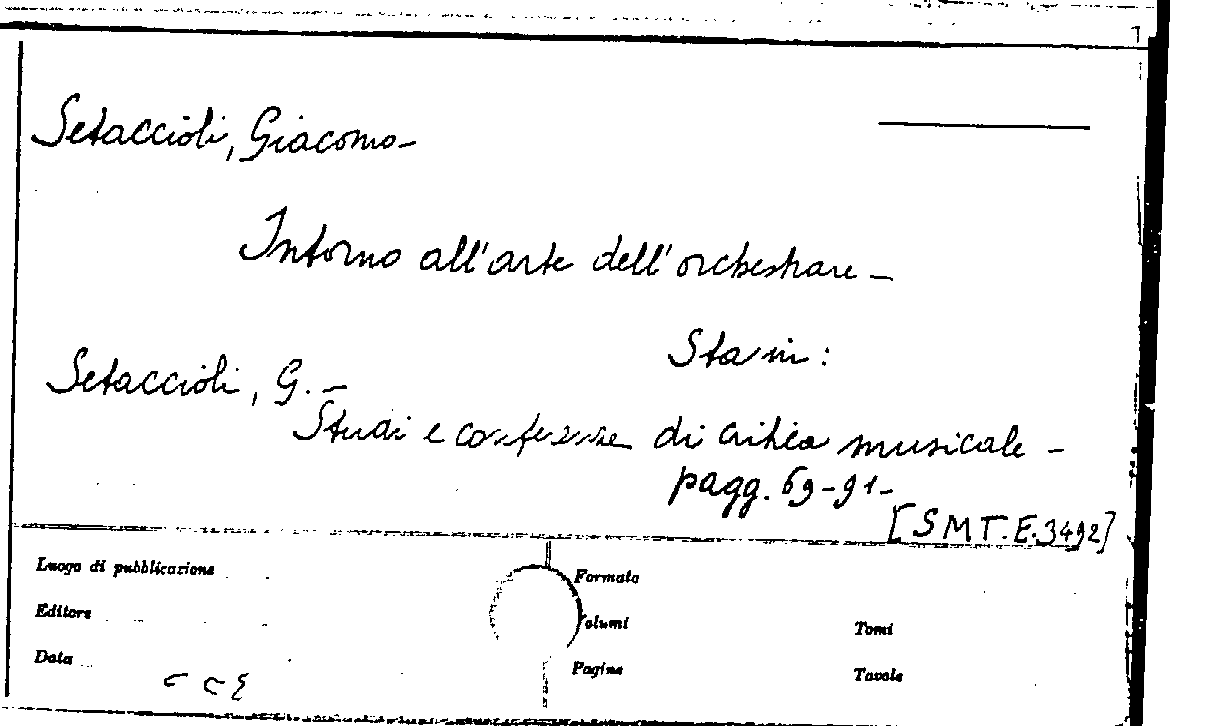 Setaccioli, Giacomo-
Intorno all'arte dell'orchestrare -
Sta in:
Setaccioli, G. -
Studi e conferenze di critica musicale -
pagg. 69-91-
[SMT.E.3492]
Luogo di pubblicazione
Formato
Editore
Volumi
Tomi
Data
Pagine
Tavole